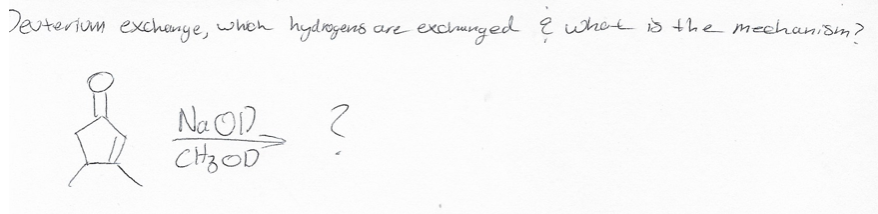 Deuterium exchange, which hydrogens are exchanged & what is the mechanism?
O
NaOD
CH3OD
?